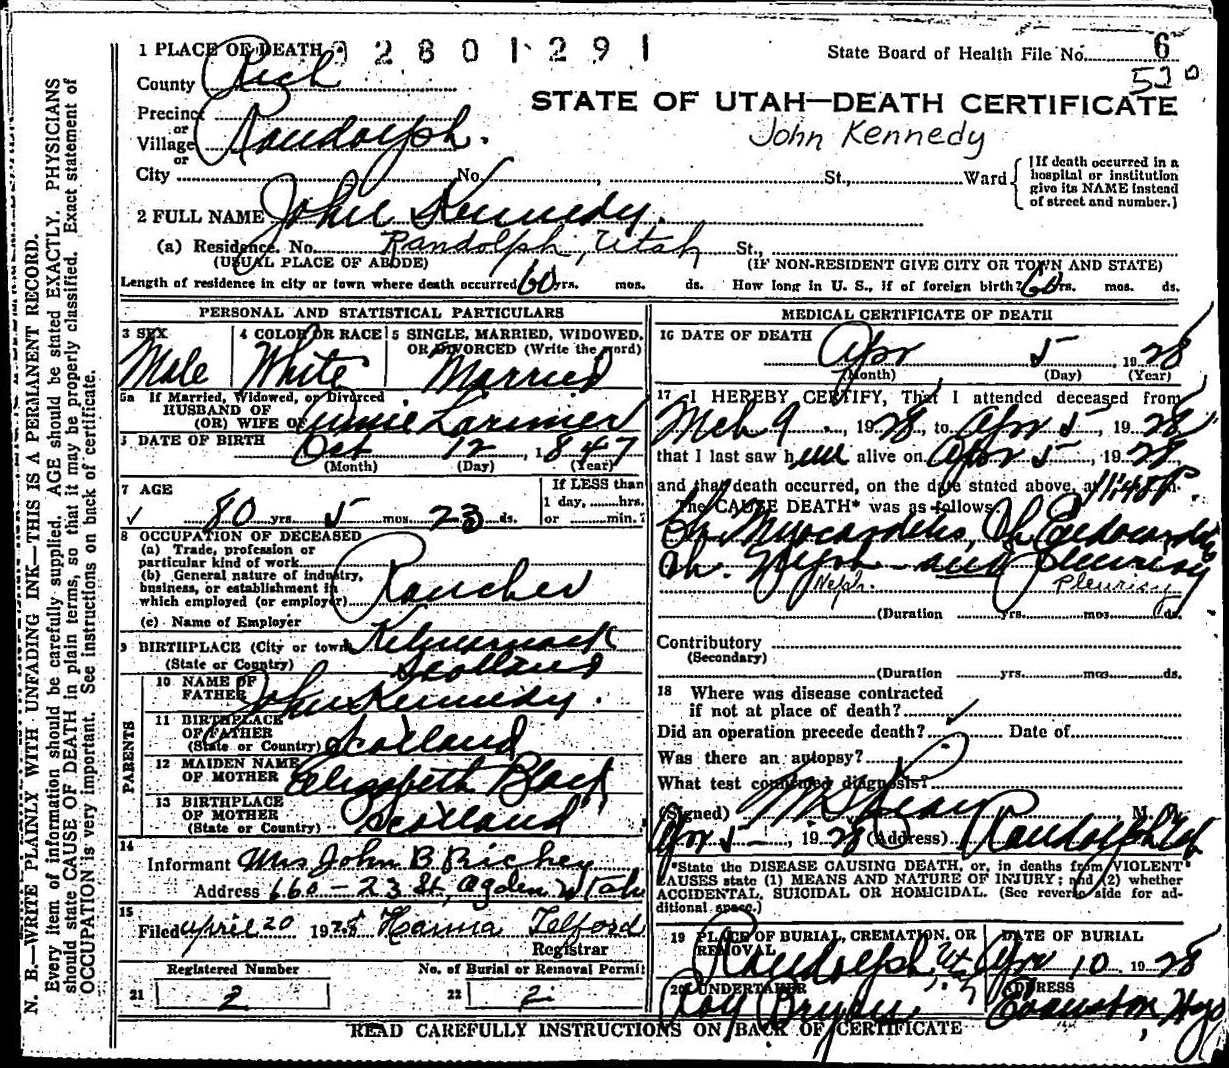 State Board of Health File No. 6
520
1 PLACE OF DEATH 2801291
County Rich
STATE OF UTAH—DEATH CERTIFICATE
John Kennedy
Precinct
or
Village Randolph.
or
City No. , St., Ward
[If death occurred in a
hospital or institution
give its NAME instead
of street and number.]
2 FULL NAME John Kennedy.
(a) Residence. No. Randolph, Utah St.,
(USUAL PLACE OF ABODE) (IF NON-RESIDENT GIVE CITY OR TOWN AND STATE)
Length of residence in city or town where death occurred 60 yrs. mos. ds. How long in U. S., if of foreign birth? 60 yrs. mos. ds.
PERSONAL AND STATISTICAL PARTICULARS
3 SEX
Male
4 COLOR OR RACE
White
5 SINGLE, MARRIED, WIDOWED,
OR DIVORCED (Write the word)
Married
5a If Married, Widowed, or Divorced
HUSBAND OF
(OR) WIFE OF Annie Larimer
DATE OF BIRTH
Oct 12, 1847
(Month) (Day) (Year)
7 AGE
80 yrs. 5 mos. 23 ds.
If LESS than
1 day, hrs.
or min.?
8 OCCUPATION OF DECEASED
(a) Trade, profession or
particular kind of work
(b) General nature of industry,
business, or establishment in
which employed (or employer) Rancher
(c) Name of Employer
9 BIRTHPLACE (City or town) Kelmarnock
(State or Country) Scotland
PARENTS
10 NAME OF
FATHER John Kennedy.
11 BIRTHPLACE
OF FATHER
(State or Country) Scotland
12 MAIDEN NAME
OF MOTHER Elizabeth Black
13 BIRTHPLACE
OF MOTHER
(State or Country) Scotland
14
Informant Mrs John B Richey
Address 660-23 St, Ogden Utah
15
Filed april 20 1928 Hanna Telford
Registrar
Registered Number
21 2
No. of Burial or Removal Permit
22 2
MEDICAL CERTIFICATE OF DEATH
16 DATE OF DEATH
Apr 5, 1928
(Month) (Day) (Year)
17 I HEREBY CERTIFY, That I attended deceased from
Mch 9, 1928, to Apr 5, 1928
that I last saw him alive on Apr 5, 1928
and that death occurred, on the date stated above, at 11:45 P. m.
The CAUSE DEATH* was as follows:
Ch. Myocarditis, Ch Endocarditis
Ch. Neph. and pleurisy
Neph. Pleurisy
(Duration yrs. mos. ds.
Contributory
(Secondary)
(Duration yrs. mos. ds.
18 Where was disease contracted
if not at place of death?
Did an operation precede death? Date of
Was there an autopsy?
What test confirmed diagnosis?
(Signed) M. D.
Apr 5, 1928 (Address) Randolph Ut
*State the DISEASE CAUSING DEATH, or, in deaths from VIOLENT
CAUSES state (1) MEANS AND NATURE OF INJURY; and (2) whether
ACCIDENTAL, SUICIDAL OR HOMICIDAL. (See reverse side for ad-
ditional space.)
19 PLACE OF BURIAL, CREMATION, OR
REMOVAL
Randolph, Ut
DATE OF BURIAL
Apr 10 1928
20 UNDERTAKER
Roy Bryan
ADDRESS
Evanston, Wyo
READ CAREFULLY INSTRUCTIONS ON BACK OF CERTIFICATE
N. B.—WRITE PLAINLY WITH UNFADING INK—THIS IS A PERMANENT RECORD.
Every item of information should be carefully supplied. AGE should be stated EXACTLY. PHYSICIANS
should state CAUSE OF DEATH in plain terms, so that it may be properly classified. Exact statement of
OCCUPATION is very important. See instructions on back of certificate.